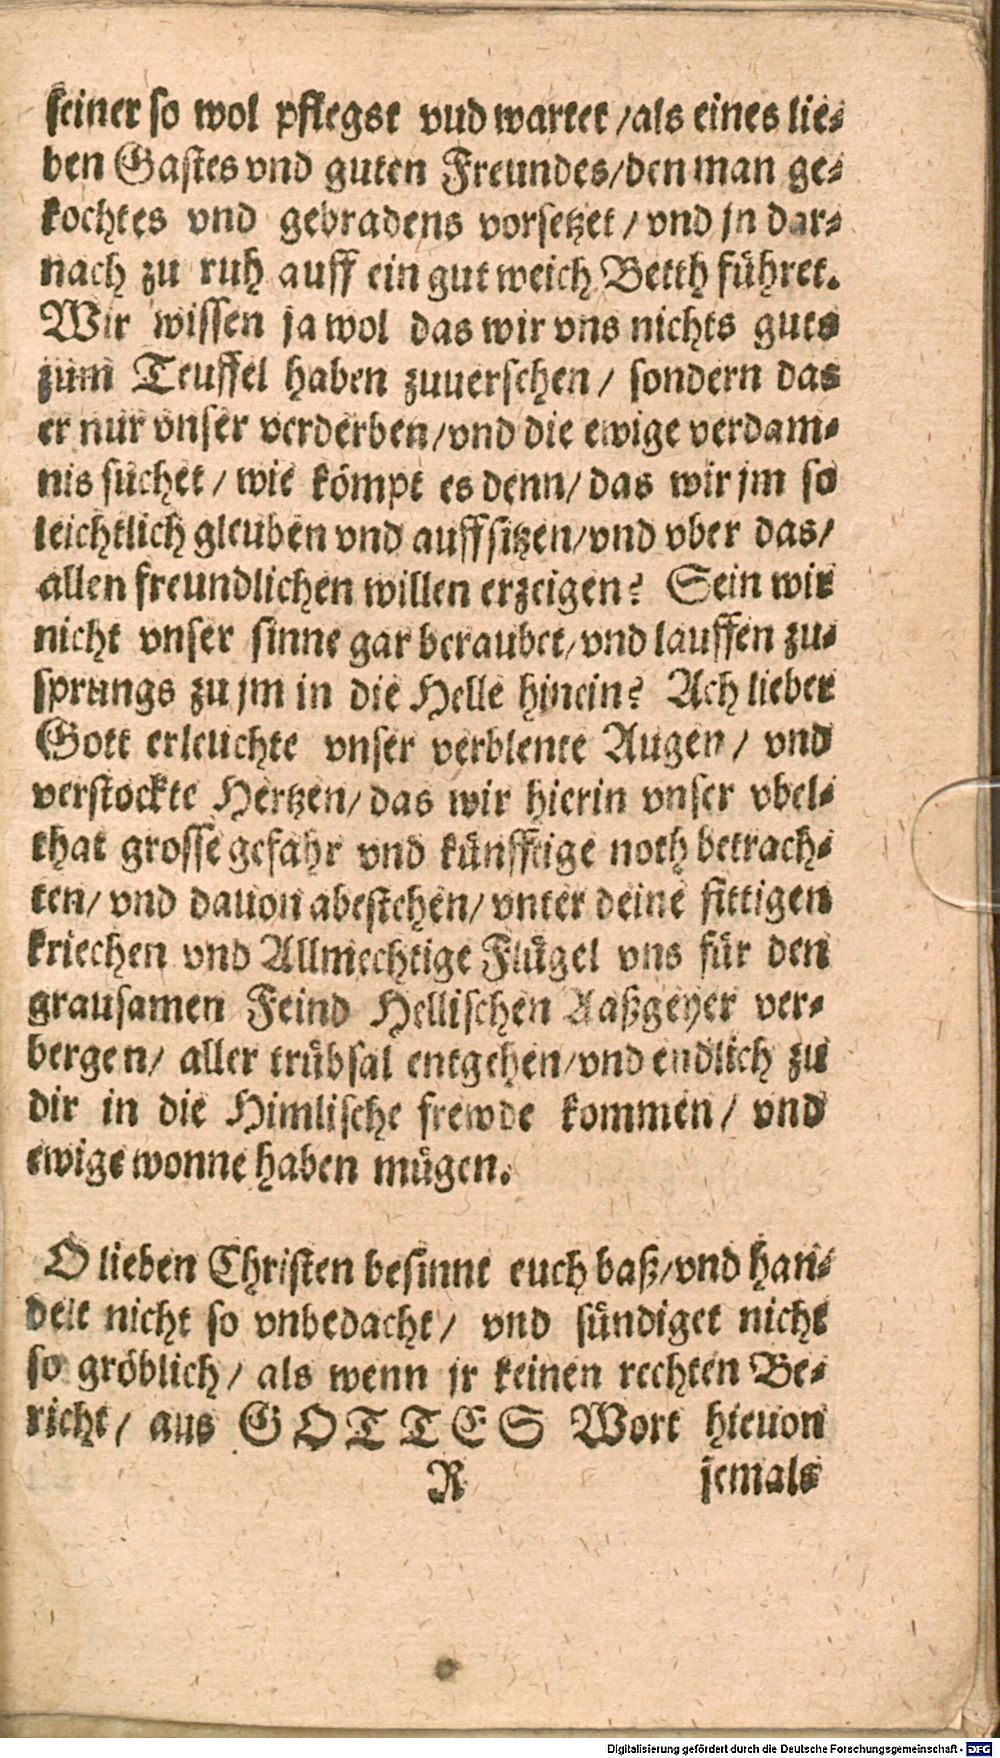 seiner so wol pflegst vud wartet /als eines lie⸗
ben Gastes vnd guten Freundes/den man ge⸗
kochtes vnd gebradens vorsetzet / vnd jn dar⸗
nach zu ruh auff ein gut weich Betth führet.
Wir wissen ja wol das wir vns nichts guts
zum Teuffel haben zuuersehen / sondern das
er nur vnser verderben/vnd die ewige verdam⸗
nis suchet / wie kömpt es denn/ das wir jm so
leichtlich gleuben vnd auffsitzen/vnd vber das/
allen freundlichen willen erzeigen? Sein wir
nicht vnser sinne gar beraubet/vnd lauffen zu⸗
sprungs zu jm in die Helle hinein? Ach lieber
Gott erleuchte vnser verblente Augen / vnd
verstockte Hertzen/ das wir hierin vnser vbel⸗
that grosse gefahr vnd künfftige noth betrach⸗
ten/ vnd dauon abestehen/ vnter deine fittigen
kriechen vnd Allmechtige Flügel vns für den
grausamen Feind Hellischen Aaßgeyer ver⸗
bergen/ aller trübsal entgehen/vnd endlich zu
dir in die Himlische frewde kommen / vnd
ewige wonne haben mügen.
O lieben Christen besinnt euch baß/vnd han⸗
delt nicht so vnbedacht / vnd sündiget nicht
so gröblich / als wenn jr keinen rechten Be⸗
richt / aus GOTTES Wort hieuon
R jemals
Digitalisierung gefördert durch die Deutsche Forschungsgemeinschaft - DFG